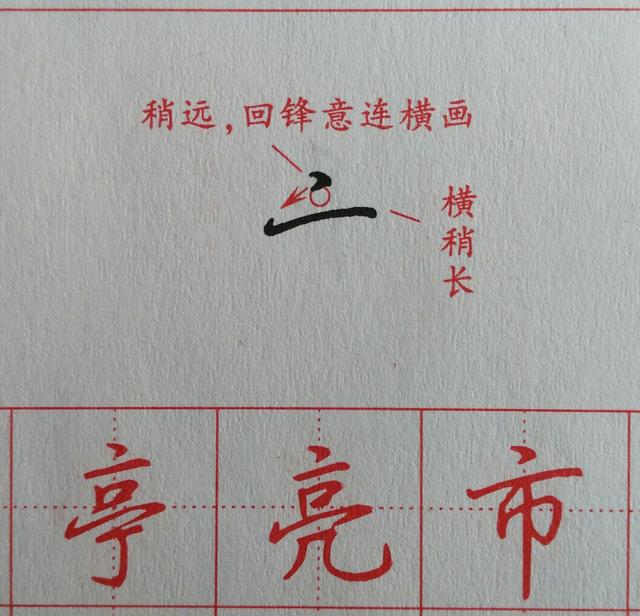 稍远,回锋意连横画
亠
横稍长
亭 亮 市